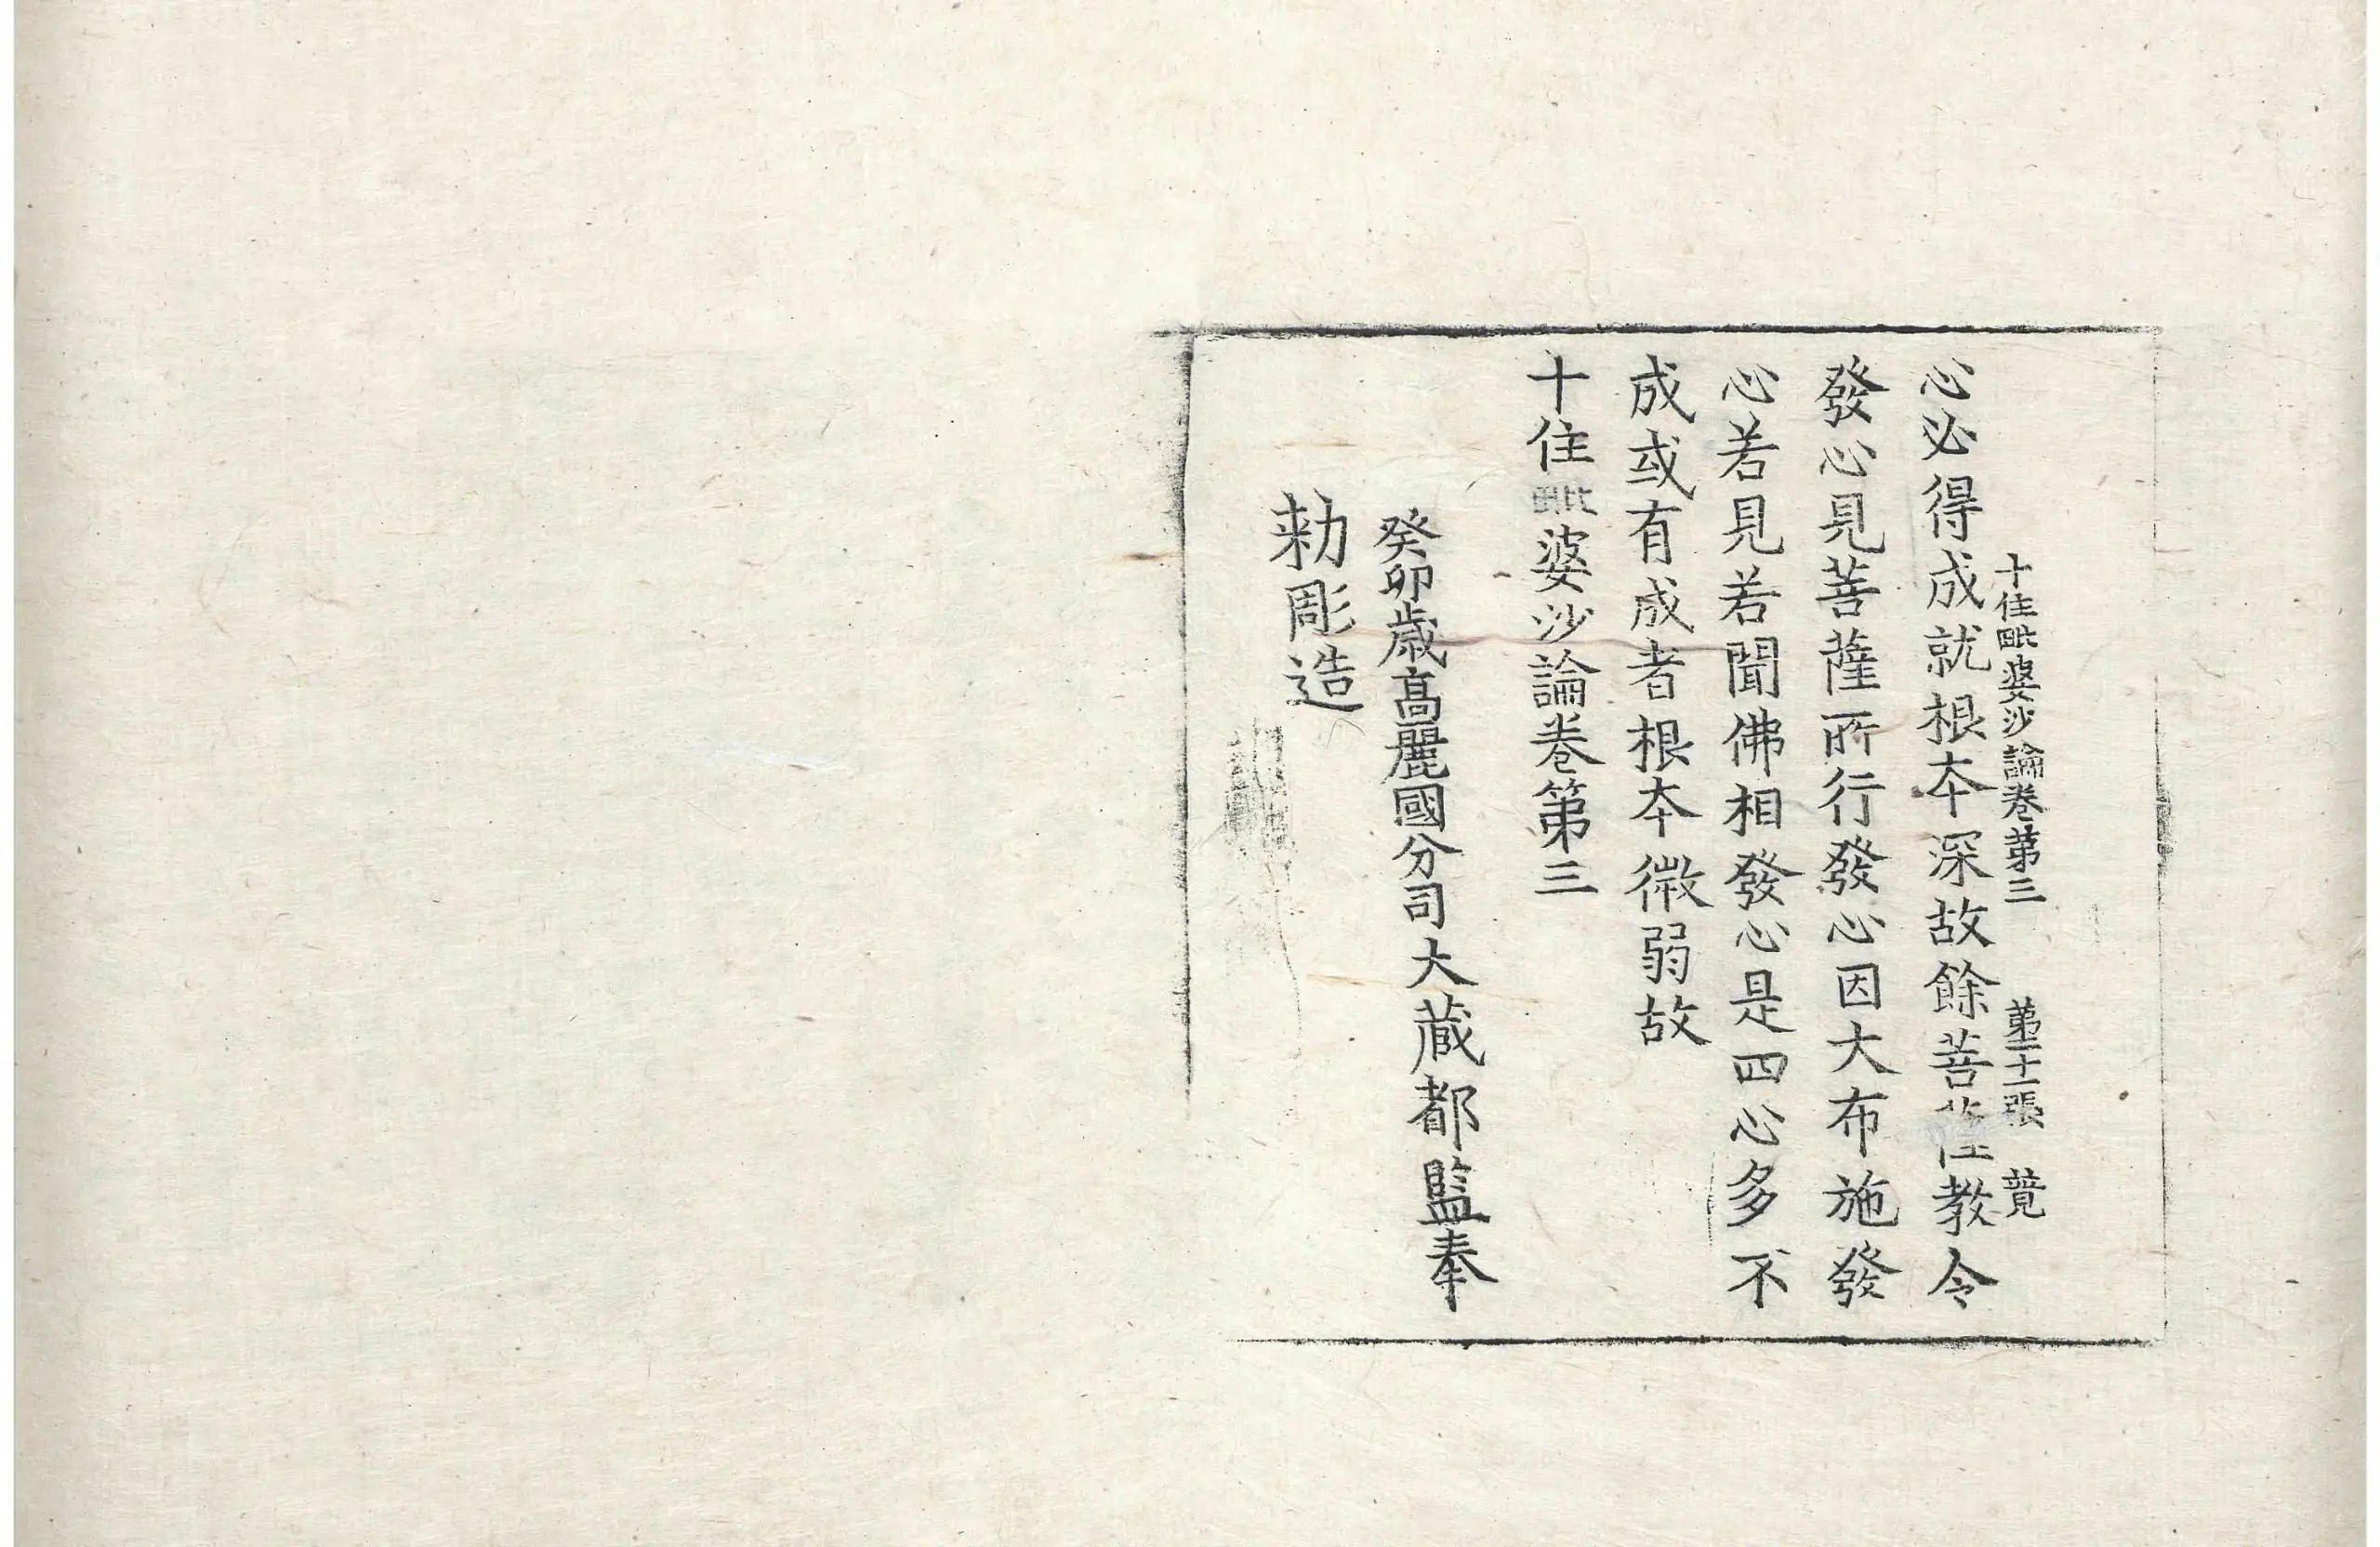 十住毗婆沙論卷第三 第二十一張 萛
心必得成就根夲深故餘菩薩教令
發心見菩薩所行發心因大布施發
心若見若聞佛相發心是四心多不
成或有成者根夲微弱故
十住毗婆沙論卷第三
癸卯歲高麗國分司大藏都監奉
勑彫造